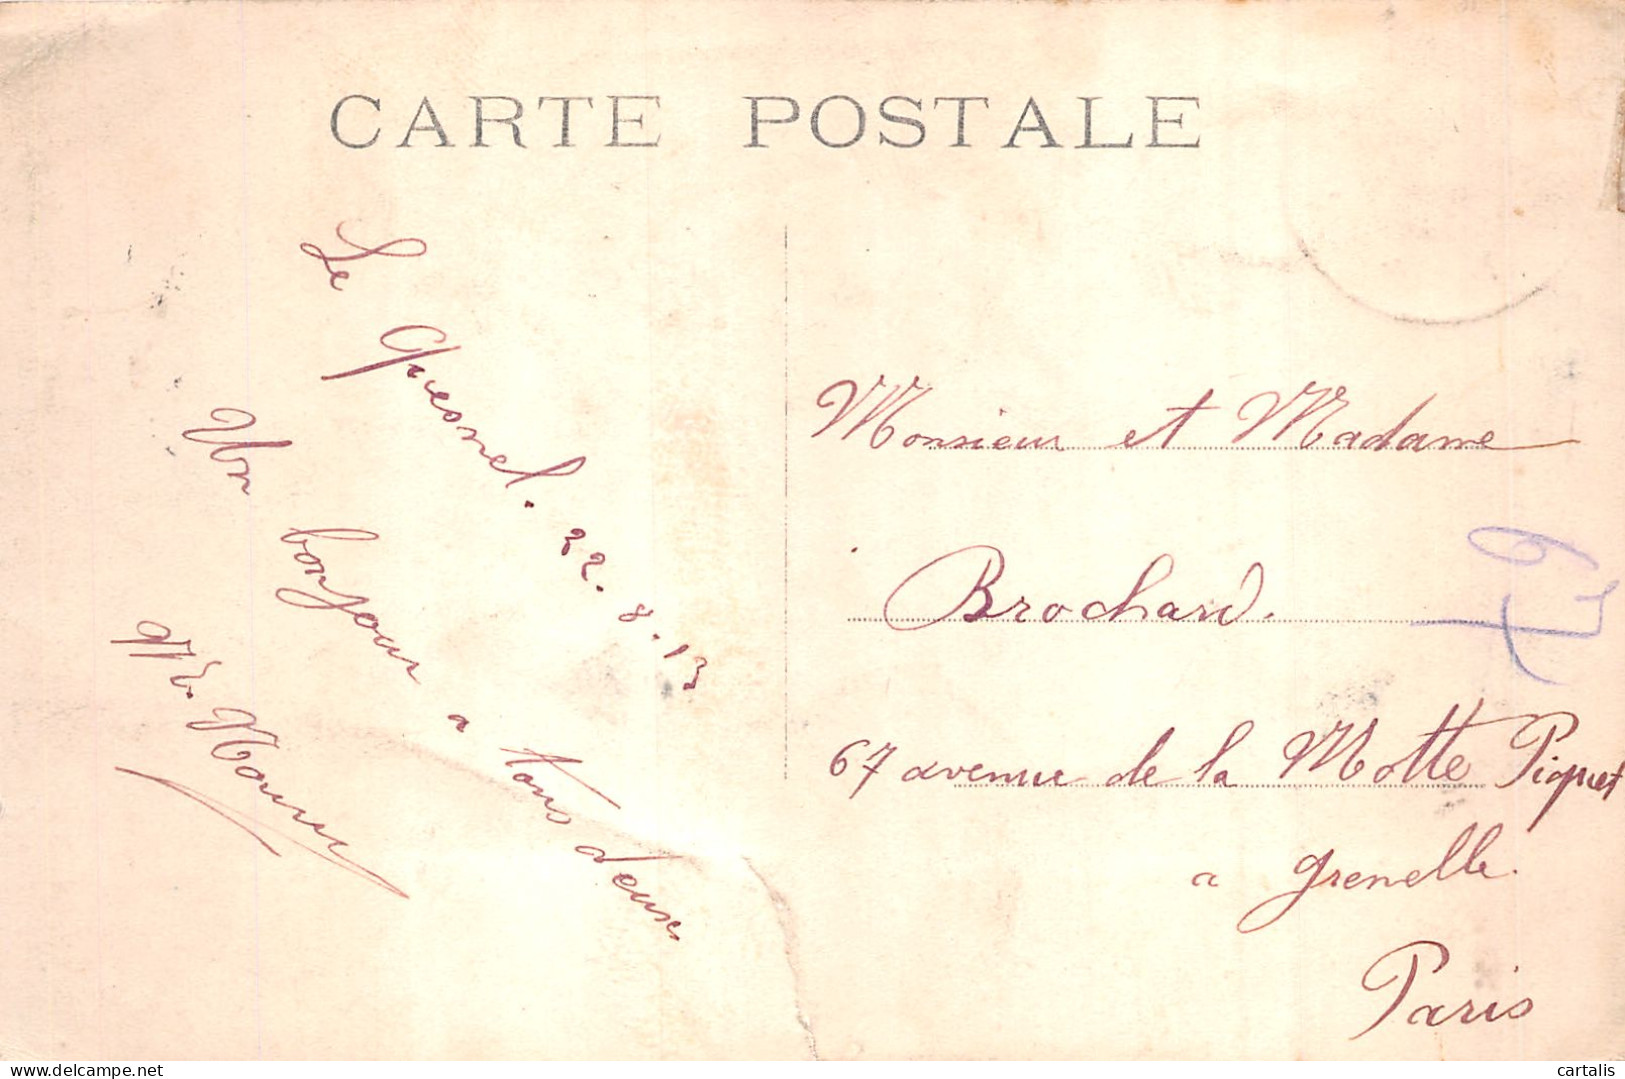 CARTE POSTALE
Le Quesnel. 22.8.13
Un bonjour a tous deux
Monsieur et Madame
Brochard.
67 avenue de la Motte Piquet
a grenelle.
Paris
cartalis
www.delcampe.net